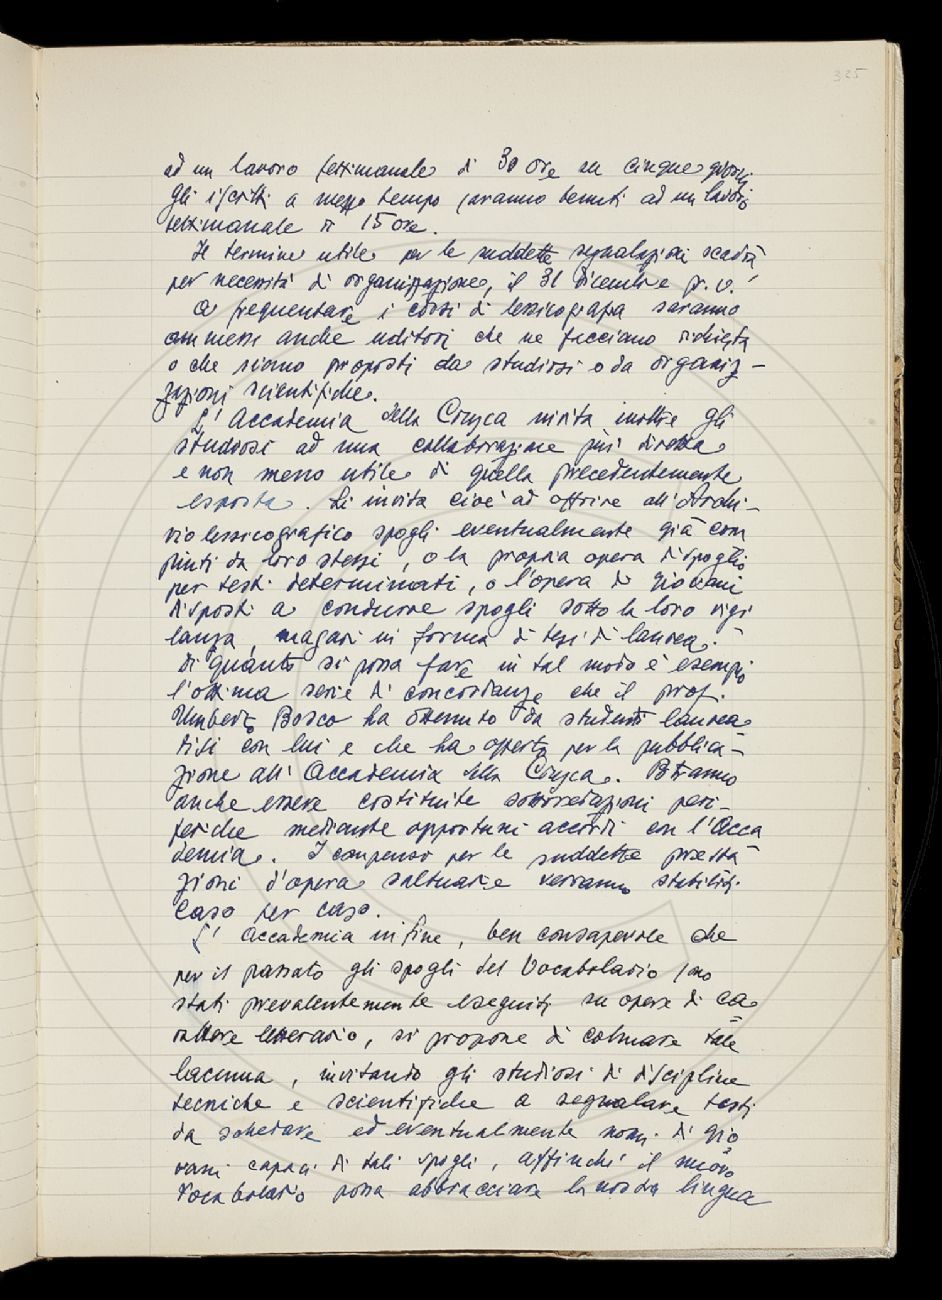 325
ad un lavoro settimanale di 30 ore su cinque giorni,
gli iscritti a mezzo tempo saranno tenuti ad un lavoro
settimanale di 15 ore.
Il termine utile per le suddette segnalazioni scadrà,
per necessità di organizzazione, il 31 dicembre p. v.
A frequentare i corsi di lessicografia saranno
ammessi anche uditori che ne facciano richiesta
o che siano proposti da studiosi o da organiz-
zazioni scientifiche.
L'Accademia della Crusca invita inoltre gli
studiosi ad una collaborazione più diretta
e non meno utile di quella precedentemente
esposta. Li invita cioè ad offrire all'Archi-
vio lessicografico spogli eventualmente già com
piuti da loro stessi, o la propria opera di spoglio
per testi determinati, o l'opera di giovani
disposti a condurre spogli sotto la loro vigi
lanza, magari in forma di tesi di laurea.
Di quanto si possa fare in tal modo è esempio
l'ottima serie di concordanze che il prof.
Umberto Bosco ha ottenuto da studenti laurea
tisi con lui e che ha offerto per la pubblica-
zione all'Accademia della Crusca. Potranno
anche essere costituite sottoredazioni peri-
feriche mediante opportuni accordi con l'Acca
demia. I compensi per le suddette presta
zioni d'opera saltuarie verranno stabiliti
caso per caso.
L'Accademia infine, ben consapevole che
per il passato gli spogli del Vocabolario sono
stati prevalentemente eseguiti su opere di ca-
rattere letterario, si propone di colmare tale
lacuna, invitando gli studiosi di discipline
tecniche e scientifiche a segnalare testi
da schedare ed eventualmente nomi di gio
vani capaci di tali spogli, affinché il nuovo
Vocabolario possa abbracciare la nostra lingua